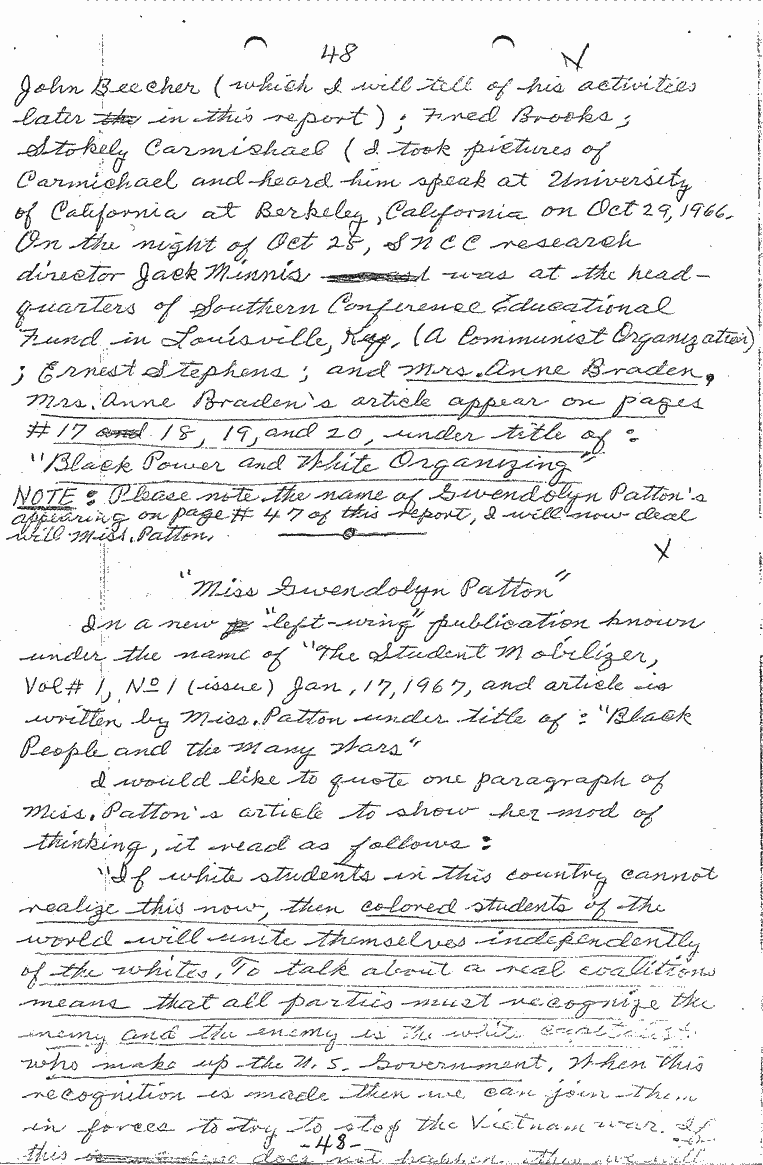 48
John Beecher (which I will tell of his activities
later the in this report); Fred Brooks;
Stokely Carmichael (I took pictures of
Carmichael and heard him speak at University
of California at Berkeley, California on Oct 29, 1966.
On the night of Oct 28, SNCC research
director Jack Minnis was at the head-
quarters of Southern Conference Educational
Fund in Louisville, Kay, (A Communist Organization)
; Ernest Stephens; and Mrs. Anne Braden.
Mrs. Anne Braden's article appear on pages
#17 and 18, 19, and 20, under title of:
"Black Power and White Organizing"
NOTE: Please note the name of Gwendolyn Patton's
appearing on page #47 of this report, I will now deal
will Miss. Patton.
X
"Miss Gwendolyn Patton"
In a new "left-wing" publication known
under the name of "The Student Mobilizer,
Vol# 1, No 1 (issue) Jan, 17, 1967, and article is
written by Miss. Patton under title of: "Black
People and the Many Wars"
I would like to quote one paragraph of
Miss. Patton's article to show her mod of
thinking, it read as follows:
"If white students in this country cannot
realize this now, then colored students of the
world will unite themselves independently
of the whites. To talk about a real coalitions
means that all parties must recognize the
enemy and the enemy is the white capitalist
who make up the U.S. Government. When this
recognition is made then we can join them
in forces to try to stop the Vietnam war. If
-48-
this does not happen then we will